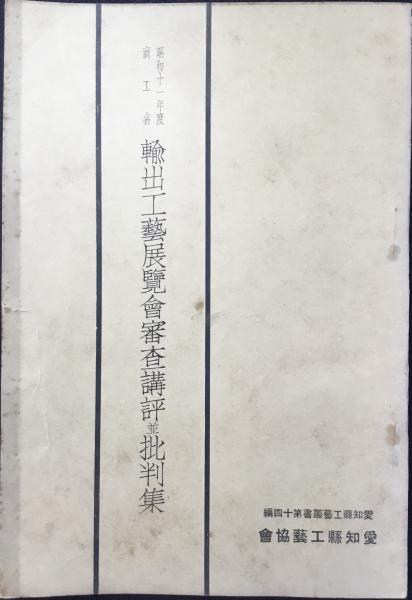 昭和十一年度
商工省
輸出工藝展覽會審査講評並批判集
愛知縣工藝叢書第十四編
愛知縣工藝協會